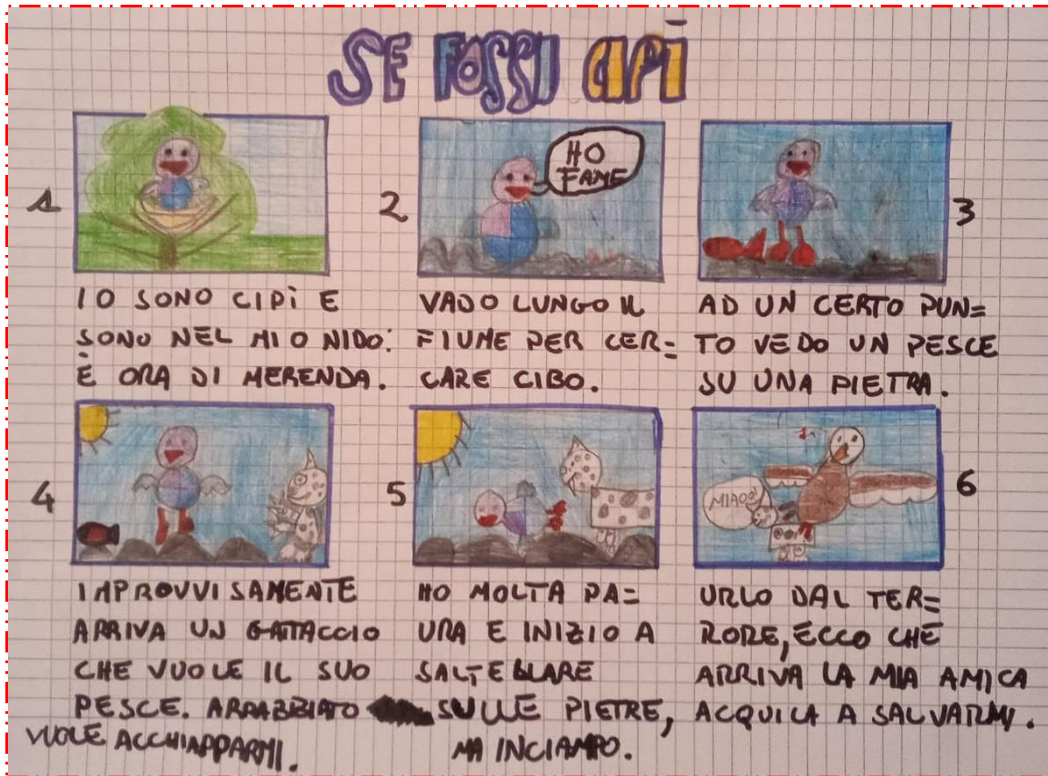 SE FOSSI CIPÌ
1
2
HO
FAME
3
IO SONO CIPÌ E
SONO NEL MIO NIDO.
È ORA DI MERENDA.
VADO LUNGO IL
FIUME PER CER=
CARE CIBO.
AD UN CERTO PUN=
TO VEDO UN PESCE
SU UNA PIETRA.
4
5
MIAOO!
6
IMPROVVISAMENTE
ARRIVA UN GATTACCIO
CHE VUOLE IL SUO
PESCE. ARRABBIATO
VUOLE ACCHIAPPARMI.
HO MOLTA PA=
URA E INIZIO A
SALTELLARE
SULLE PIETRE,
MA INCIAMPO.
URLO DAL TER=
RORE, ECCO CHE
ARRIVA LA MIA AMICA
ACQUILA A SALVARMI.